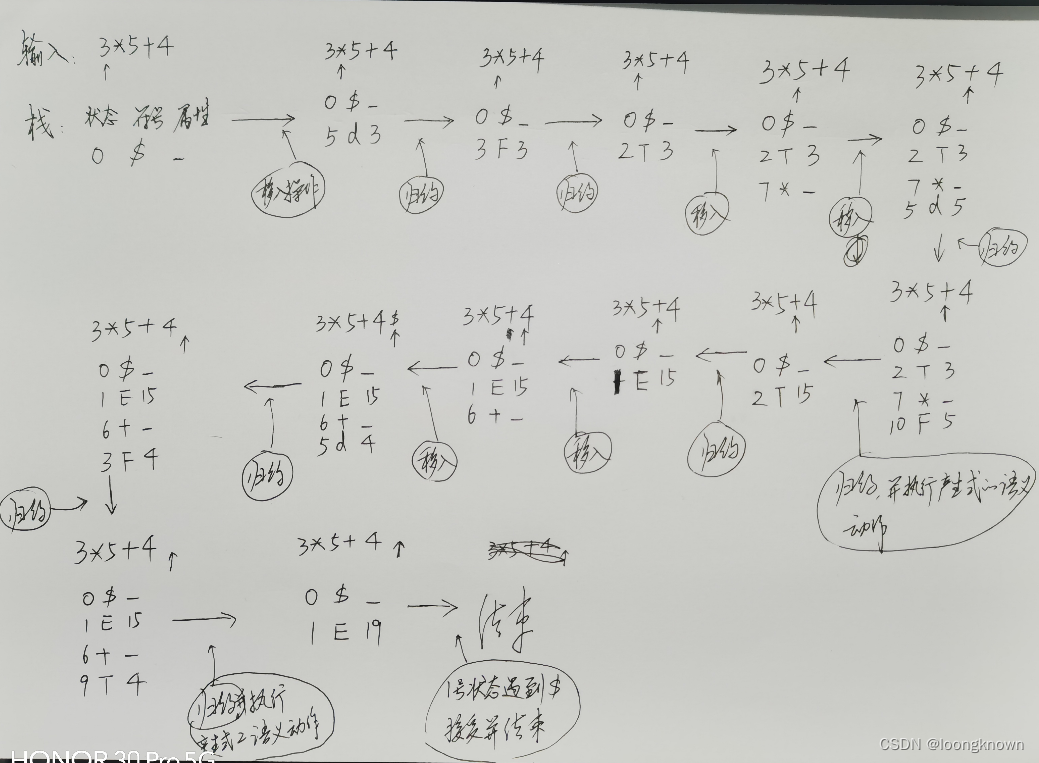 输入: 3*5+4
↑
栈: 状态 符号 属性
0 $ _
移入操作
3*5+4
↑
0 $ _
5 d 3
归约
3*5+4
↑
0 $ _
3 F 3
归约
3*5+4
↑
0 $ _
2 T 3
移入
3*5+4
↑
0 $ _
2 T 3
7 * _
移入
3*5+4
↑
0 $ _
2 T 3
7 * _
5 d 5
归约
3*5+4
↑
0 $ _
2 T 3
7 * _
10 F 5
归约,并执行产生式的语义
动作
3*5+4
↑
0 $ _
2 T 15
归约
3*5+4
↑
0 $ _
1 E 15
移入
3*5+4
↑
0 $ _
1 E 15
6 + _
移入
3*5+4$
↑
0 $ _
1 E 15
6 + _
5 d 4
归约
3*5+4
↑
0 $ _
1 E 15
6 + _
3 F 4
归约
3*5+4
↑
0 $ _
1 E 15
6 + _
9 T 4
归约并执行
产生式之语义动作
3*5+4
↑
0 $ _
1 E 19
3*5+4
↑
结束
1号状态遇到$
接受并结束
HONOR 30 Pro 5G
CSDN @loongknown